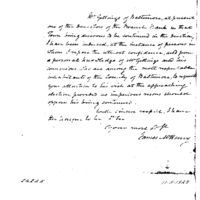 Mr Gittings of Baltimore, at present
one of the Directors of the Branch Bank in that
Town being desirous to be continued in the direction,
I have been induced, at the instance of persons in
whom I repose the utmost confidence, and from
a personal knowledge of Mr Gittings and his
connexions who are among the most respectable
inhabitants of the County of Baltimore, to request
your attention to his wish at the approaching
election, provided no imperious more should
oppose his being continued.
With sincere respect, I have
the honour to be
Your most
James McHenry